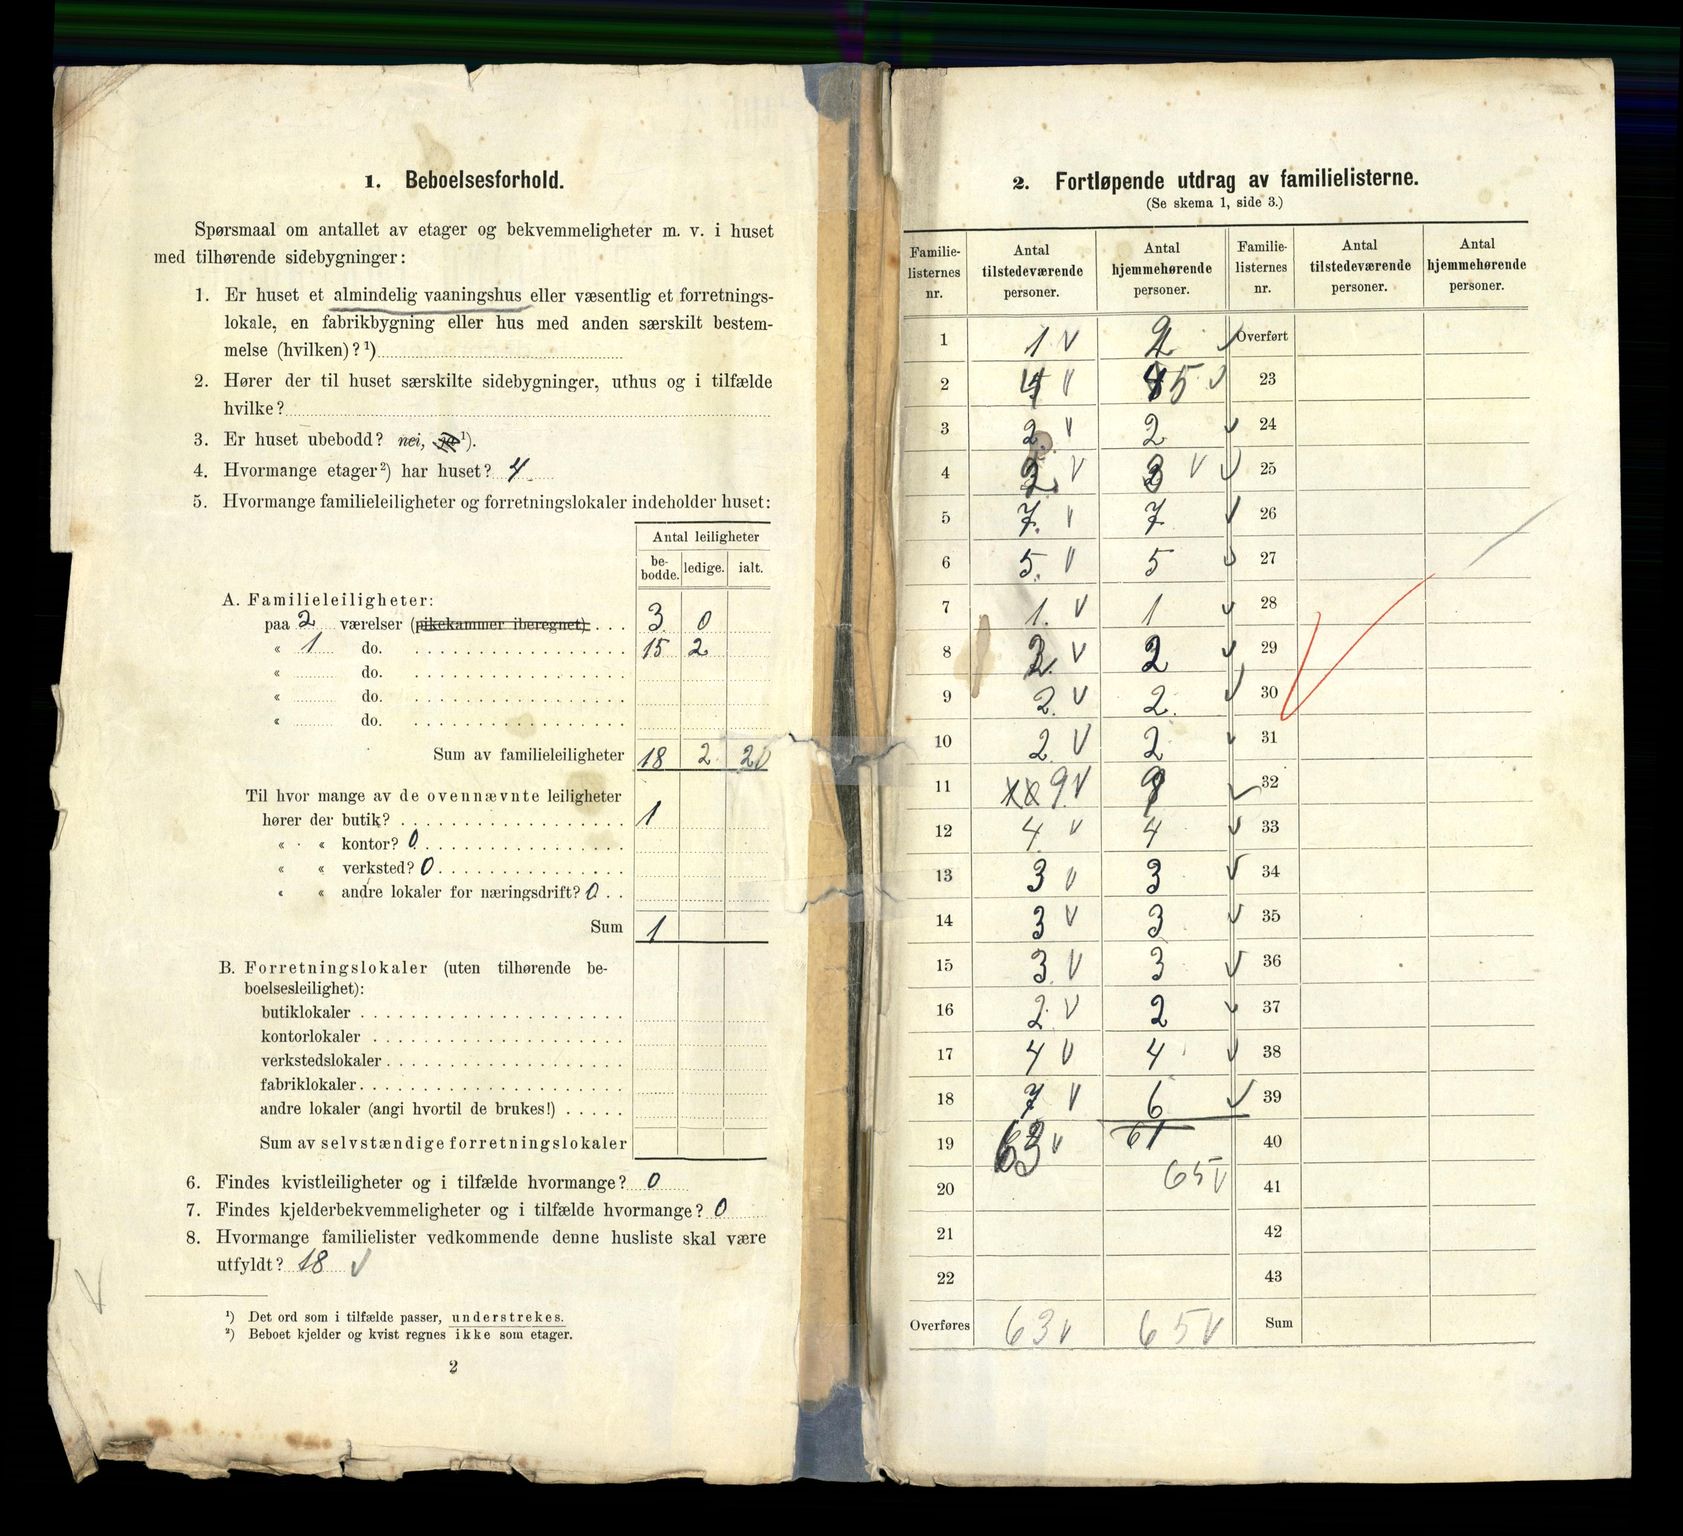 1. Beboelsesforhold.
Spørsmaal om antallet av etager og bekvemmeligheter m. v. i huset
med tilhørende sidebygninger:
1. Er huset et almindelig vaaningshus eller væsentlig et forretnings-
lokale, en fabrikbygning eller hus med anden særskilt bestem-
melse (hvilken)?¹)
2. Hører der til huset særskilte sidebygninger, uthus og i tilfælde
hvilke?
3. Er huset ubebodd? nei, ja ¹).
4. Hvormange etager²) har huset? 4
5. Hvormange familieleiligheter og forretningslokaler indeholder huset:
Antal leiligheter
be-
bodde. ledige. ialt.
A. Familieleiligheter:
paa 2 værelser (pikekammer iberegnet) . . . 3 0
« 1 do. 15 2
« do.
« do.
« do.
Sum av familieleiligheter 18 2 20
Til hvor mange av de ovennævnte leiligheter
hører der butik? 1
« « kontor? 0
« « verksted? 0
« « andre lokaler for næringsdrift? 0
Sum 1
B. Forretningslokaler (uten tilhørende be-
boelsesleilighet):
butiklokaler
kontorlokaler
verkstedslokaler
fabriklokaler
andre lokaler (angi hvortil de brukes!)
Sum av selvstændige forretningslokaler
6. Findes kvistleiligheter og i tilfælde hvormange? 0
7. Findes kjelderbekvemmeligheter og i tilfælde hvormange? 0
8. Hvormange familielister vedkommende denne husliste skal være
utfyldt? 18 v
¹) Det ord som i tilfælde passer, understrekes.
²) Beboet kjelder og kvist regnes ikke som etager.
2
2. Fortløpende utdrag av familielisterne.
(Se skema 1, side 3.)
Familie-listernes nr. Antal tilstedeværende personer. Antal hjemmehørende personer. Familie-listernes nr. Antal tilstedeværende personer. Antal hjemmehørende personer.
1 1 v Overført
2 4 v 5 v 23
3 2 v 2 24
4 v 3 v 25
5 7 v 7 26
6 5 v 5 27
7 1 v 1 28
8 2 v 2 29
9 2 v 2 30
10 2 v 2 31
11 9 v 9 32
12 4 v 4 33
13 3 v 3 34
14 3 v 3 35
15 3 v 3 36
16 2 v 2 37
17 4 v 4 38
18 7 v 6 39
19 63 v 61 40
20 65 v 41
21 42
22 43
Overføres 63 v 65 v Sum